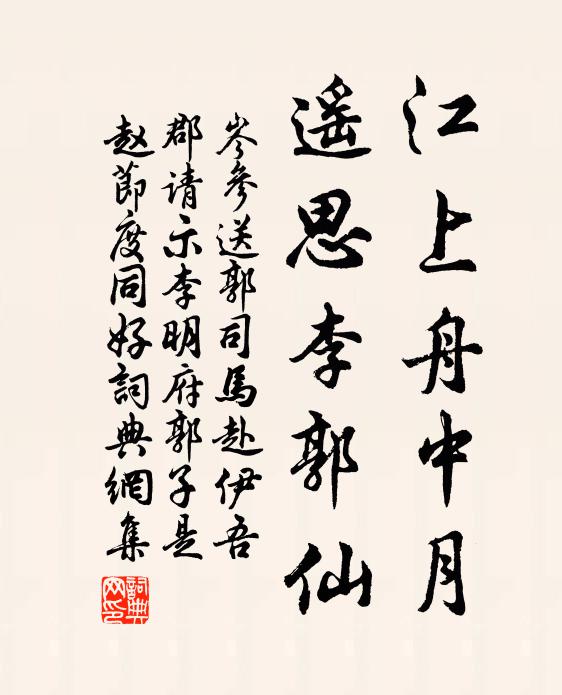 江上舟中月
遥思李郭仙
岑參送郭司馬赴伊吾
郡请示李明府郭子是
赵節度同好詞典網集
詞典
网印